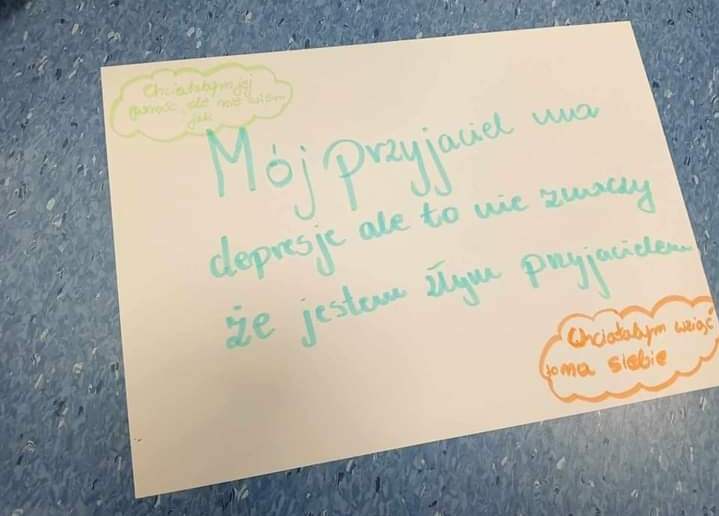 Chciałabym jej
pomóc ale nie wiem
jak
Mój przyjaciel ma
depresję ale to nie znaczy
że jestem złym przyjacielem
Chciałabym wziąć
to na siebie